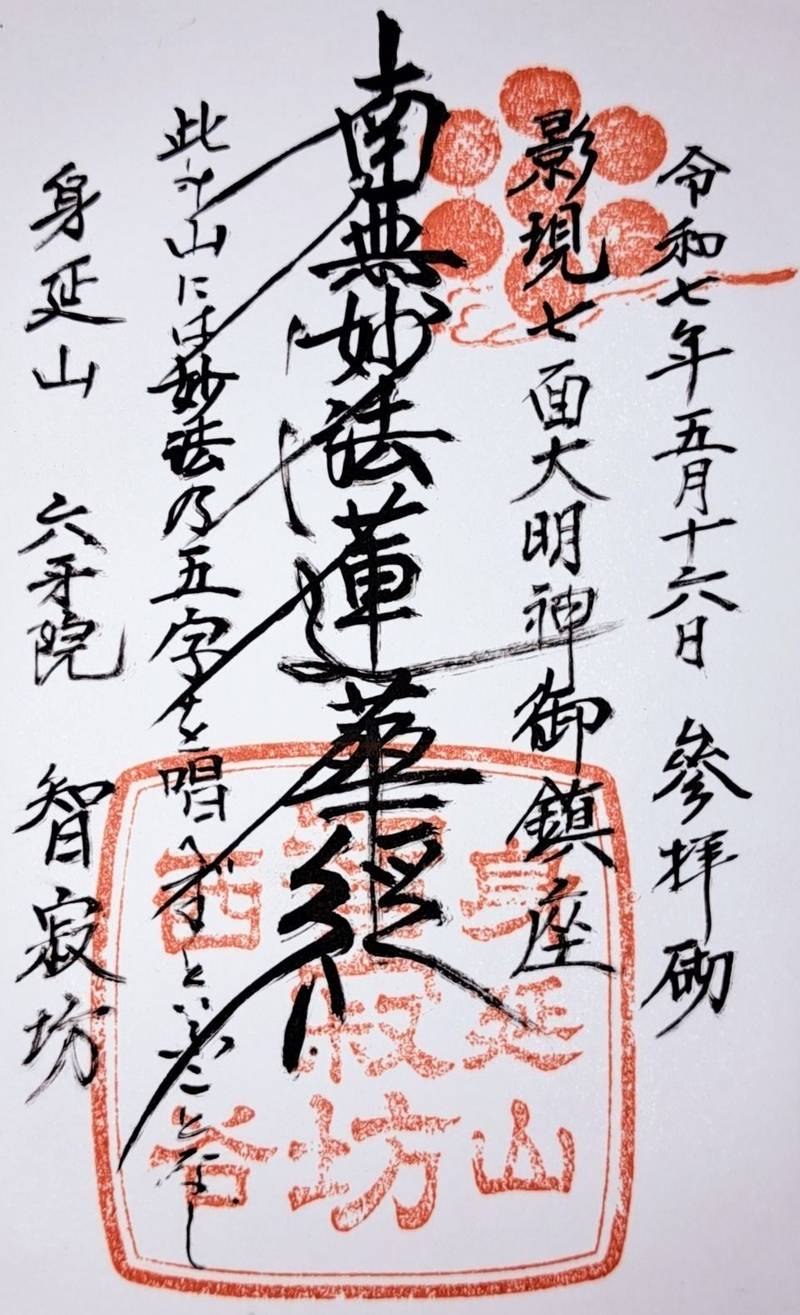 令和七年五月十六日 參拝砌
影現七面大明神御鎮座
南無妙法蓮華経
此の山には妙法乃五字を唱へずといふことなし
身延山 六牙院 智寂坊
身延山
智寂坊
西谷